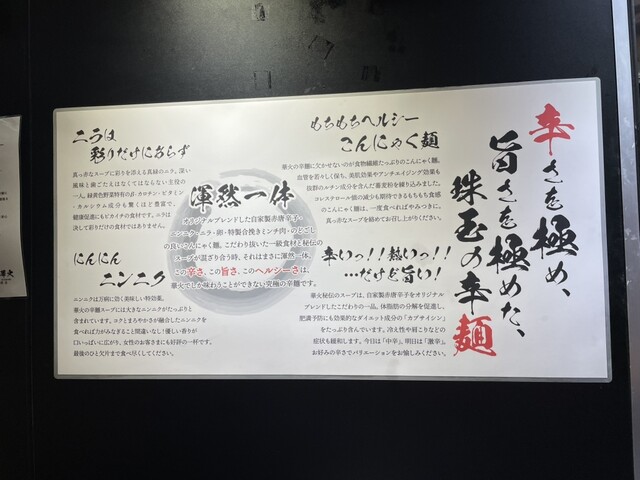 辛さを極め、
旨さを極めた、
珠玉の辛麺
もちもちヘルシー
こんにゃく麺
華火の辛麺に欠かせないのが食物繊維たっぷりのこんにゃく麺。
血管を若々しく保ち、美肌効果やアンチエイジング効果も
抜群のルチン成分を含んだ蕎麦粉を練り込みました。
コレステロール値の減少も期待できるもちもち食感
のこんにゃく麺は、一度食べればやみつきに。
真っ赤なスープに絡めてお召し上がりください。
辛いっ!!熱いっ!!
…だけど旨い!
華火秘伝のスープは、自家製赤唐辛子をオリジナル
ブレンドしたこだわりの一品。体脂肪の分解を促進し、
肥満予防にも効果的なダイエット成分の「カプサイシン」
をたっぷり含んでいます。冷え性や肩こりなどの
症状も緩和します。今日は「中辛」、明日は「激辛」。
お好みの辛さでバリエーションをお愉しみください。
渾然一体
オリジナルブレンドした自家製赤唐辛子・
ニンニク・ニラ・卵・特製合挽きミンチ肉・のどごし
の良いこんにゃく麺。こだわり抜いた一級食材と秘伝の
スープが混ざり合う時、それはまさに渾然一体。
この辛さ、この旨さ、このヘルシーさは、
華火でしか味わうことができない究極の辛麺です。
ニラは
彩りだけにあらず
真っ赤なスープに彩りを添える真緑のニラ。深い
風味と歯ごたえはなくてはならない主役の
一人。緑黄色野菜特有のβ-カロチン・ビタミン
・カルシウム成分も驚くほど豊富で、
健康促進にもピカイチの食材です。ニラは
決して彩りだけの食材ではありません。
にんにん
ニンニク
ニンニクは万病に効く美味しい特効薬。
華火の辛麺スープには大きなニンニクがたっぷりと
含まれています。コクとまろやかさが融合したニンニクを
食べれば力がみなぎること間違いなし!優しい香りが
口いっぱいに広がり、女性のお客さまにも好評の一杯です。
最後のひと欠片まで食べ尽くしてください。